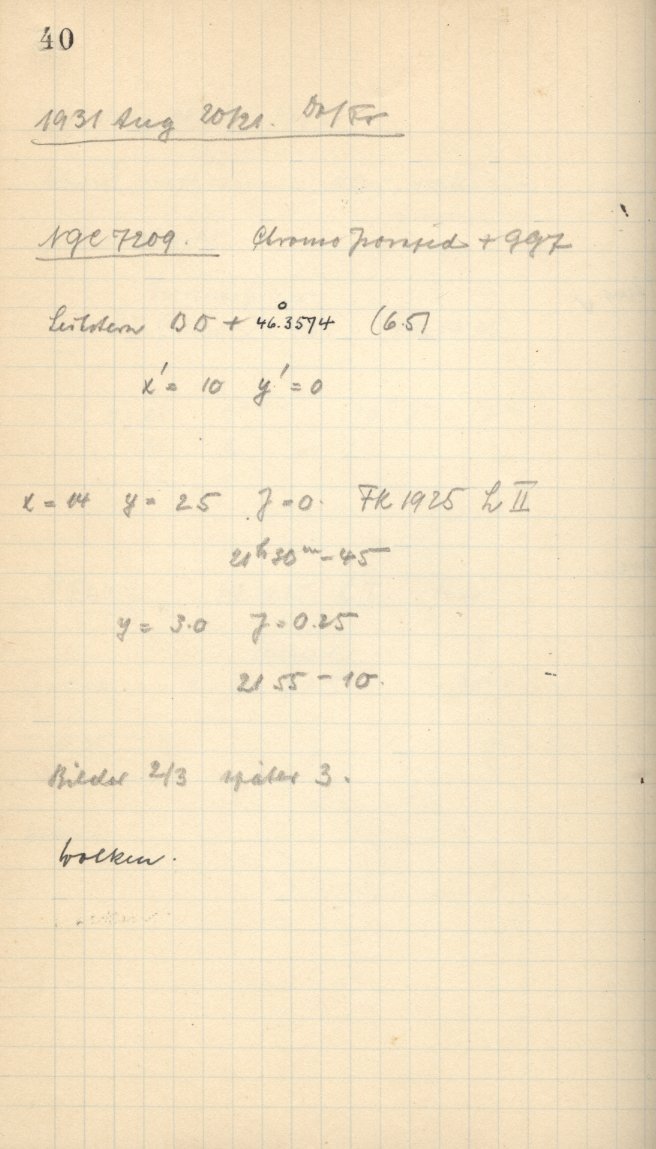 40
1931 Aug 20/21. Do/Fr
NGC 7209. Chromo Isorapid + GG7
Leitstern BD + 46°.3574 (6.5)
x' = 10 y' = 0
x = 14 y = 25 J = 0. FK 1925 h II
21h30m - 45
y = 3.0 J = 0.25
21 55 - 10.
Bilder 2/3 später 3.
Wolken.